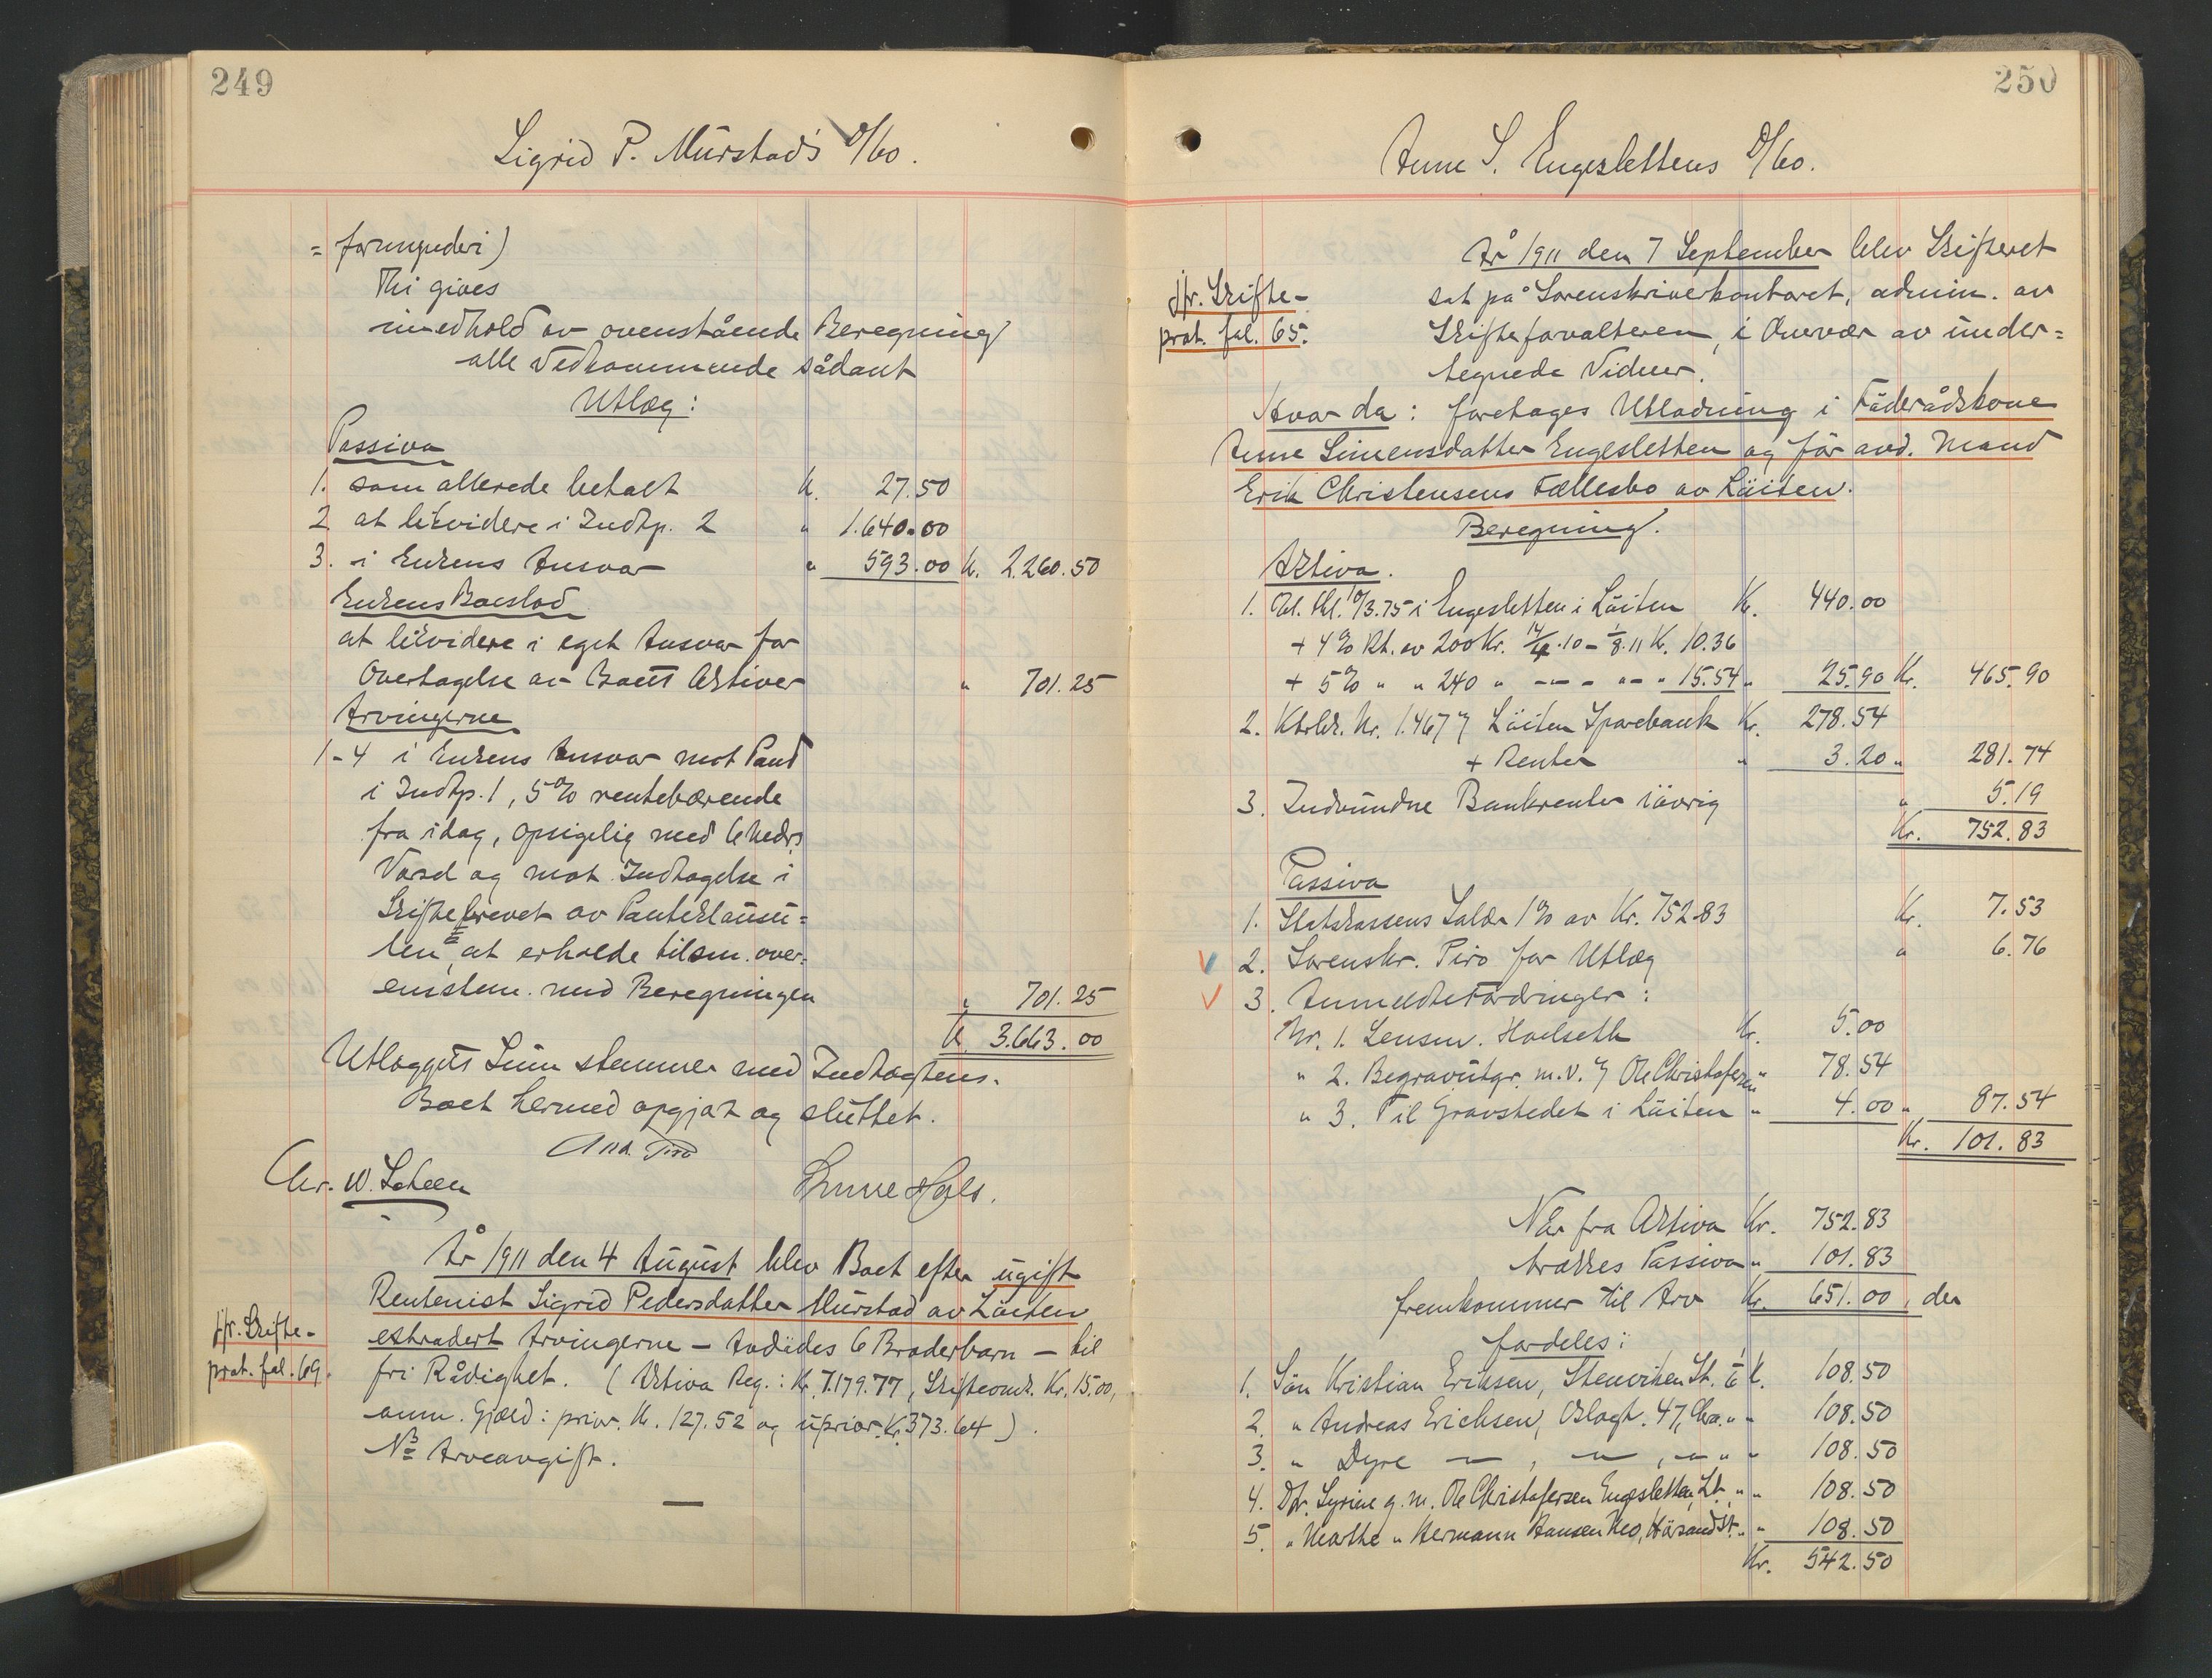 249
Sigrid P. Murstad's D/bo.
= formynderi)
Thi gives
i medhold av ovenstående Beregning
alle Vedkommende sådant
Utlæg:
Passiva
1. som allerede betalt K. 27.50
2 at likvidere i Indtp. 2 " 1.640.00
3. i Enkens Ansvar " 593.00 K. 2.260.50
Enkens Boeslod
at likvidere i eget Ansvar for
Overtagelse av Boets Aktiver " 701.25
Arvingerne
1-4 i Enkens Ansvar mot Pant
i Indtp. 1, 5% rentebærende
fra idag, opsigelig med 6 Mdrs
Varsel og mot Indtagelse i
Skiftebrevet av Panteklausu=
len, at erholde tilsm. over=
enstem. med Beregningen " 701.25
K. 3.663.00
Utlæggets Sum stemmer med Indtægtens.
Boet hermed opgjort og sluttet.
And. Piro
Chr. W. Scheen
År 1911 den 4 August blev Boet efter ugift
Rentenist Sigrid Pedersdatter Murstad av Löiten
jfr. Skifte-
prot. fol. 69.
extradert Arvingerne – Avdødes 6 Broderbarn – til
fri Rådighet. (Aktiva Reg.: Kr. 7.179.77, Skifteomk. Kr. 15,00,
anm. Gjæld: prior. K. 127.52 og uprior. Kr. 373.64).
No Arveavgift.
250
Anne S. Engeslettens D/bo.
År 1911 den 7 September blev Skifteret
jfr. Skifte-
prot. fol. 65.
sat på Sorenskriverkontoret, admin. av
Skifteforvalteren, i Overvær av under=
tegnede Vidner.
Hvor da: foretages Utlodning i Föderådskone
Anne Simensdatter Engesletten og för avd. Mand
Erik Christensens Fællesbo av Löiten.
Beregning.
Aktiva.
1. Obl. thl. 10/3.75 i Engesletten i Löiten Kr. 440.00
+ 4% Rt. av 200 Kr. 14/4.10 – 1/8.11 K. 10.36
+ 5% " " 240 " –"– – "–" 15.54 " 25.90 Kr. 465.90
2. Ktrbk. Nr. 1.467 Löiten Sparebank Kr. 278.54
+ Renter " 3.20 " 281.74
3. Indvundne Bankrenter iövrig " 5.19
Kr. 752.83
Passiva
1. Statskassens Salær 1% av Kr. 752.83 Kr. 7.53
2. Sorenskr. Piro for Utlæg " 6.76
3. Anmeldte Fordringer:
Nr. 1. Lensm. Hoelseth Kr. 5.00
" 2. Begravutgr. m.v. Ole Christofersen " 78.54
" 3. Til Gravstedet i Löiten " 4.00 " 87.54
Kr. 101.83
Når fra Aktiva Kr. 752.83
trækkes Passiva " 101.83
fremkommer til Arv Kr. 651.00, der
fordeles:
1. Sön Kristian Eriksen, Stenviken St. K. 108.50
2. " Andreas Erichsen, Oslogt. 47, Chra. " 108.50
3. " Dyre –"–, –"–, –"– " 108.50
4. Dtr. Syrine g. m. Ole Christofersen Engesletten, Lt. " 108.50
5. " Marthe " Hermann Hansen Mo, Hörsand St. " 108.50
Kr. 542.50